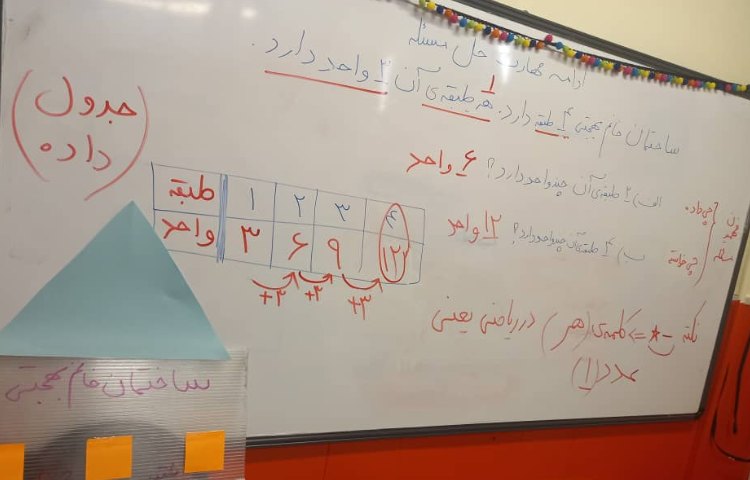 ادامه مهارت حل مسئله
ساختمان خانم بهجتی ۴ طبقه دارد. هر طبقه‌ی آن ۳ واحد دارد.
۱
الف) ۲ طبقه‌ی آن چند واحد دارد؟ ۶ واحد
ب) ۴ طبقه‌ی آن چند واحد دارد؟ ۱۲ واحد
چی داده
چی خواسته
فهمیدن
مسئله
(جدول
داده)
طبقه ۱ ۲ ۳ ۴
واحد ۳ ۶ ۹ ۱۲
+۳ +۳ +۳
نکته ی * => کلمه‌ی (هر) در ریاضی یعنی
عدد (۱)
ساختمان خانم بهجتی